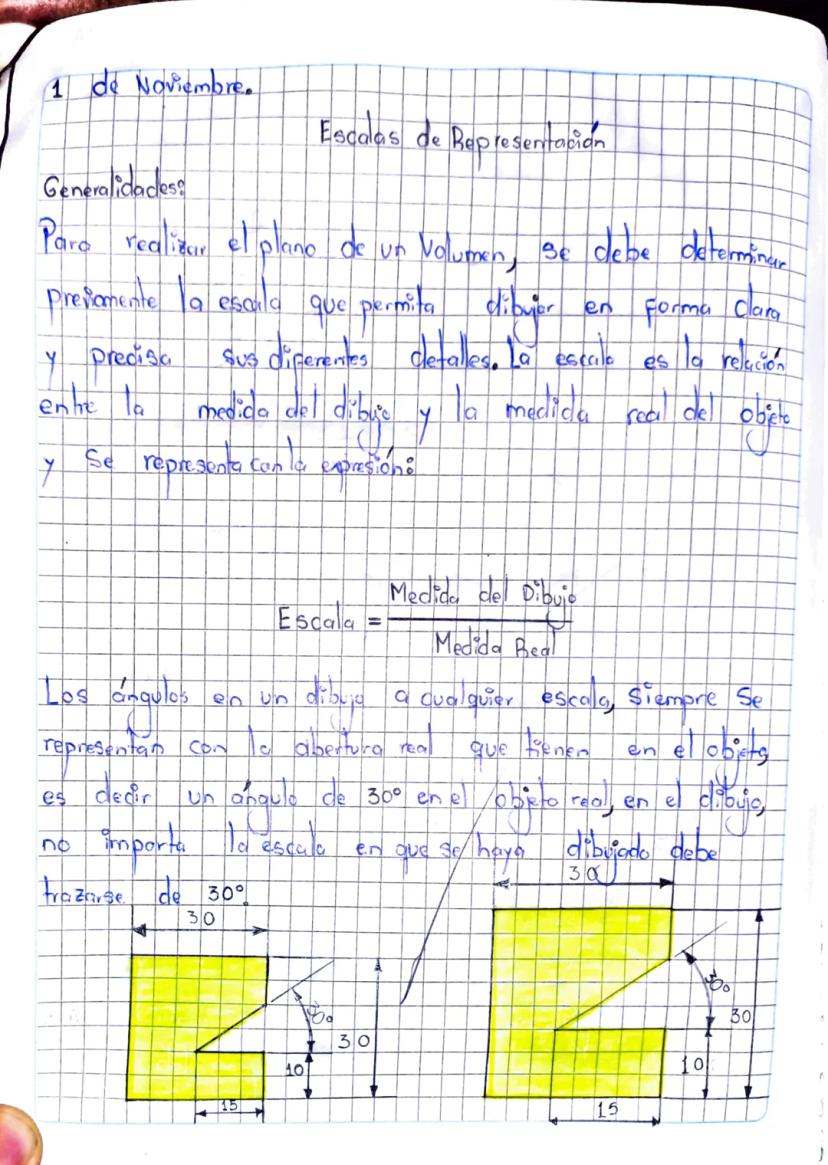 1 de Noviembre.
Escalas de Representación
Generalidades:
Para realizar el plano de un Volumen, se debe determinar
previamente la escala que permita dibujar en forma clara
y precisa sus diferentes detalles. La escala es la relación
entre la medida del dibujo y la medida real del objeto
y se representa con la expresión:
Escala = Medida del Dibujo
Medida Real
Los ángulos en un dibujo a cualquier escala, siempre se
representan con la abertura real que tienen en el objeto
es decir un ángulo de 30° en el objeto real, en el dibujo,
no importa la escala en que se haya dibujado debe
trazarse de 30°.
30
30°
30
10
15
30
30°
30
10
15